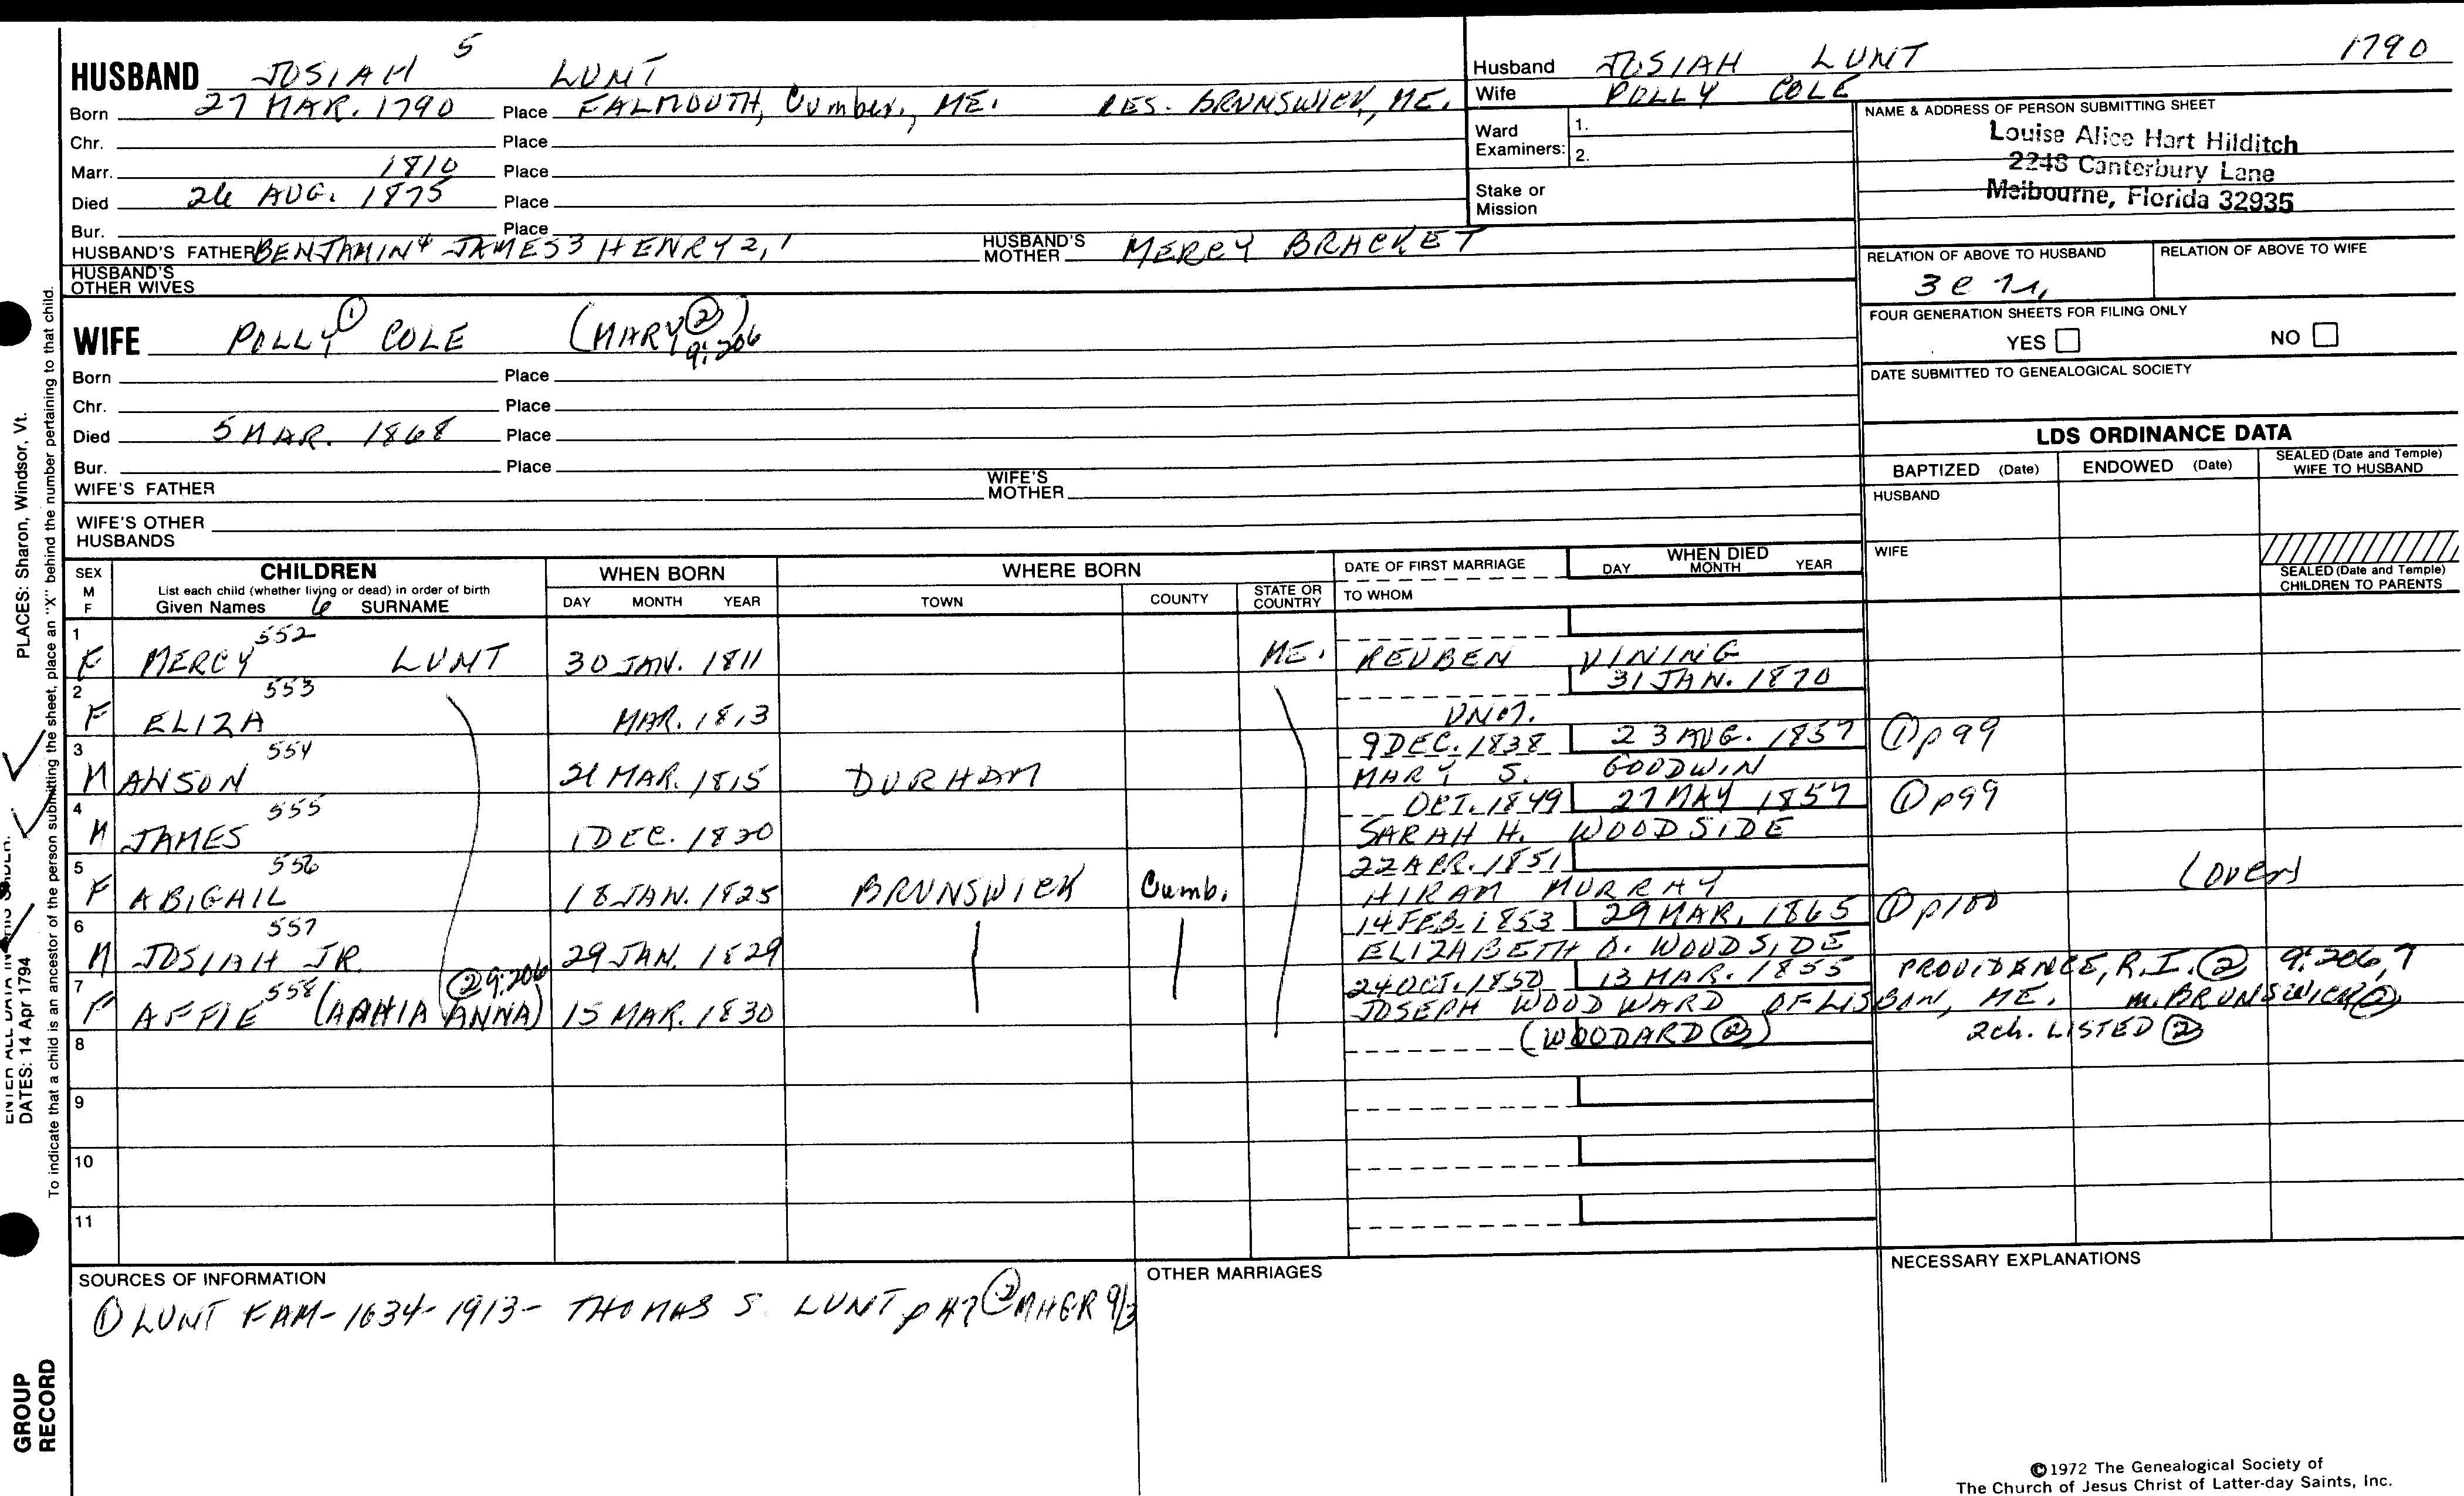 HUSBAND JOSIAH 5 LUNT
Born 27 MAR. 1790 Place FALMOUTH, Cumber., ME. RES. BRUNSWICK, ME.
Chr. Place
Marr. 1810 Place
Died 26 AUG. 1875 Place
Bur. Place
HUSBAND'S FATHER BENJAMIN 4 JAMES 3 HENRY 2, 1 HUSBAND'S MOTHER MERCY BRACKET
HUSBAND'S OTHER WIVES
WIFE POLLY ① COLE (MARY ②) 9:206
Born Place
Chr. Place
Died 5 MAR. 1868 Place
Bur. Place
WIFE'S FATHER WIFE'S MOTHER
WIFE'S OTHER HUSBANDS
Husband JOSIAH LUNT 1790
Wife POLLY COLE
Ward Examiners: 1.
2.
Stake or Mission
NAME & ADDRESS OF PERSON SUBMITTING SHEET
Louise Alice Hart Hilditch
2248 Canterbury Lane
Melbourne, Florida 32935
RELATION OF ABOVE TO HUSBAND RELATION OF ABOVE TO WIFE
FOUR GENERATION SHEETS FOR FILING ONLY
YES NO
DATE SUBMITTED TO GENEALOGICAL SOCIETY
LDS ORDINANCE DATA
BAPTIZED (Date) ENDOWED (Date) SEALED (Date and Temple) WIFE TO HUSBAND
HUSBAND
WIFE
SEALED (Date and Temple) CHILDREN TO PARENTS
SEX M F
CHILDREN
List each child (whether living or dead) in order of birth
Given Names 6 SURNAME
WHEN BORN
DAY MONTH YEAR
WHERE BORN
TOWN COUNTY STATE OR COUNTRY
DATE OF FIRST MARRIAGE
TO WHOM
WHEN DIED
DAY MONTH YEAR
1 F MERCY 552 LUNT 30 JAN. 1811 ME. REUBEN VINING
2 F ELIZA 553 MAR. 1813 31 JAN. 1870 UNM.
3 M ANSON 554 21 MAR. 1815 DURHAM 9 DEC. 1838 23 AUG. 1857 MARY S. GOODWIN ① p 99
4 M JAMES 555 1 DEC. 1820 OCT. 1849 27 MAY 1857 SARAH H. WOODSIDE ① p99
5 F ABIGAIL 556 18 JAN. 1825 BRUNSWICK Cumb. 22 APR. 1851 HIRAM MURRAY (OVER)
6 M JOSIAH JR. 557 29 JAN. 1829 14 FEB. 1853 29 MAR. 1865 ELIZABETH D. WOODSIDE ① p100
7 F AFFIE 558 (APHIA ANNA) ② 9:206 15 MAR. 1830 24 OCT. 1850 13 MAR. 1855 PROVIDENCE, R.I. ② 9:206,7
JOSEPH WOODWARD OF LISBON, ME. m. BRUNSWICK ②
8 (WOODARD ②) 2 ch. LISTED ②
9
10
11
SOURCES OF INFORMATION
① LUNT FAM - 1634 - 1913 - THOMAS S. LUNT p 47 ② MHGR 9/3
OTHER MARRIAGES
NECESSARY EXPLANATIONS
©1972 The Genealogical Society of
The Church of Jesus Christ of Latter-day Saints, Inc.
PLACES: Sharon, Windsor, Vt.
DATES: 14 Apr 1794
To indicate that a child is an ancestor of the person submitting the sheet, place an "X" behind the number pertaining to that child.
GROUP
RECORD